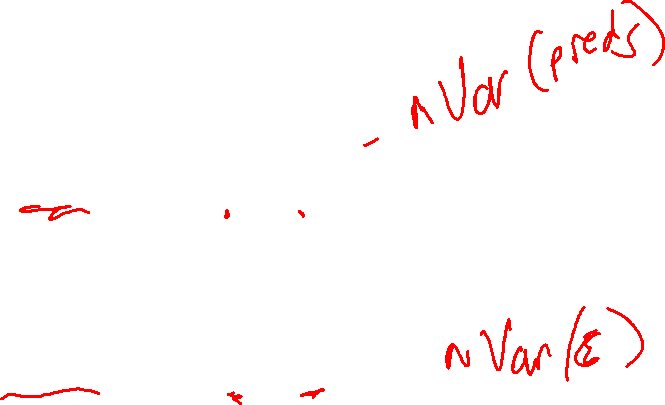 nVar(preds)
nVar(ε)